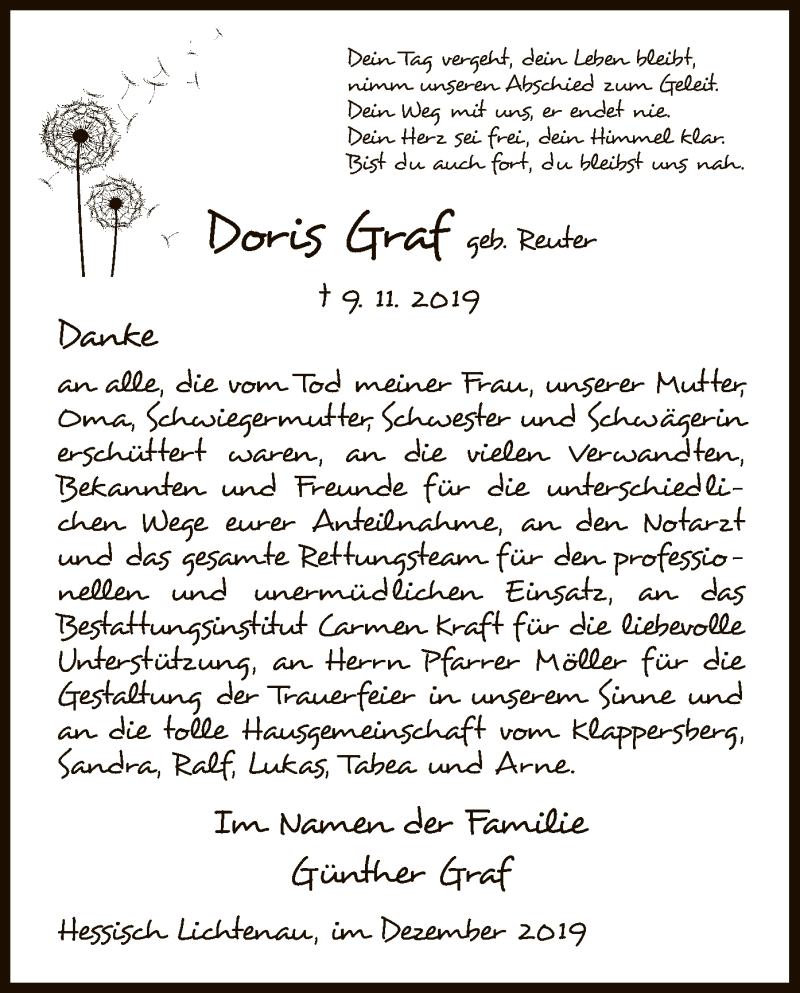 Dein Tag vergeht, dein Leben bleibt,
nimm unseren Abschied zum Geleit.
Dein Weg mit uns, er endet nie.
Dein Herz sei frei, dein Himmel klar.
Bist du auch fort, du bleibst uns nah.
Doris Graf geb. Reuter
† 9. 11. 2019
Danke
an alle, die vom Tod meiner Frau, unserer Mutter,
Oma, Schwiegermutter, Schwester und Schwägerin
erschüttert waren, an die vielen Verwandten,
Bekannten und Freunde für die unterschiedli-
chen Wege eurer Anteilnahme, an den Notarzt
und das gesamte Rettungsteam für den professio-
nellen und unermüdlichen Einsatz, an das
Bestattungsinstitut Carmen Kraft für die liebevolle
Unterstützung, an Herrn Pfarrer Möller für die
Gestaltung der Trauerfeier in unserem Sinne und
an die tolle Hausgemeinschaft vom Klappersberg,
Sandra, Ralf, Lukas, Tabea und Arne.
Im Namen der Familie
Günther Graf
Hessisch Lichtenau, im Dezember 2019